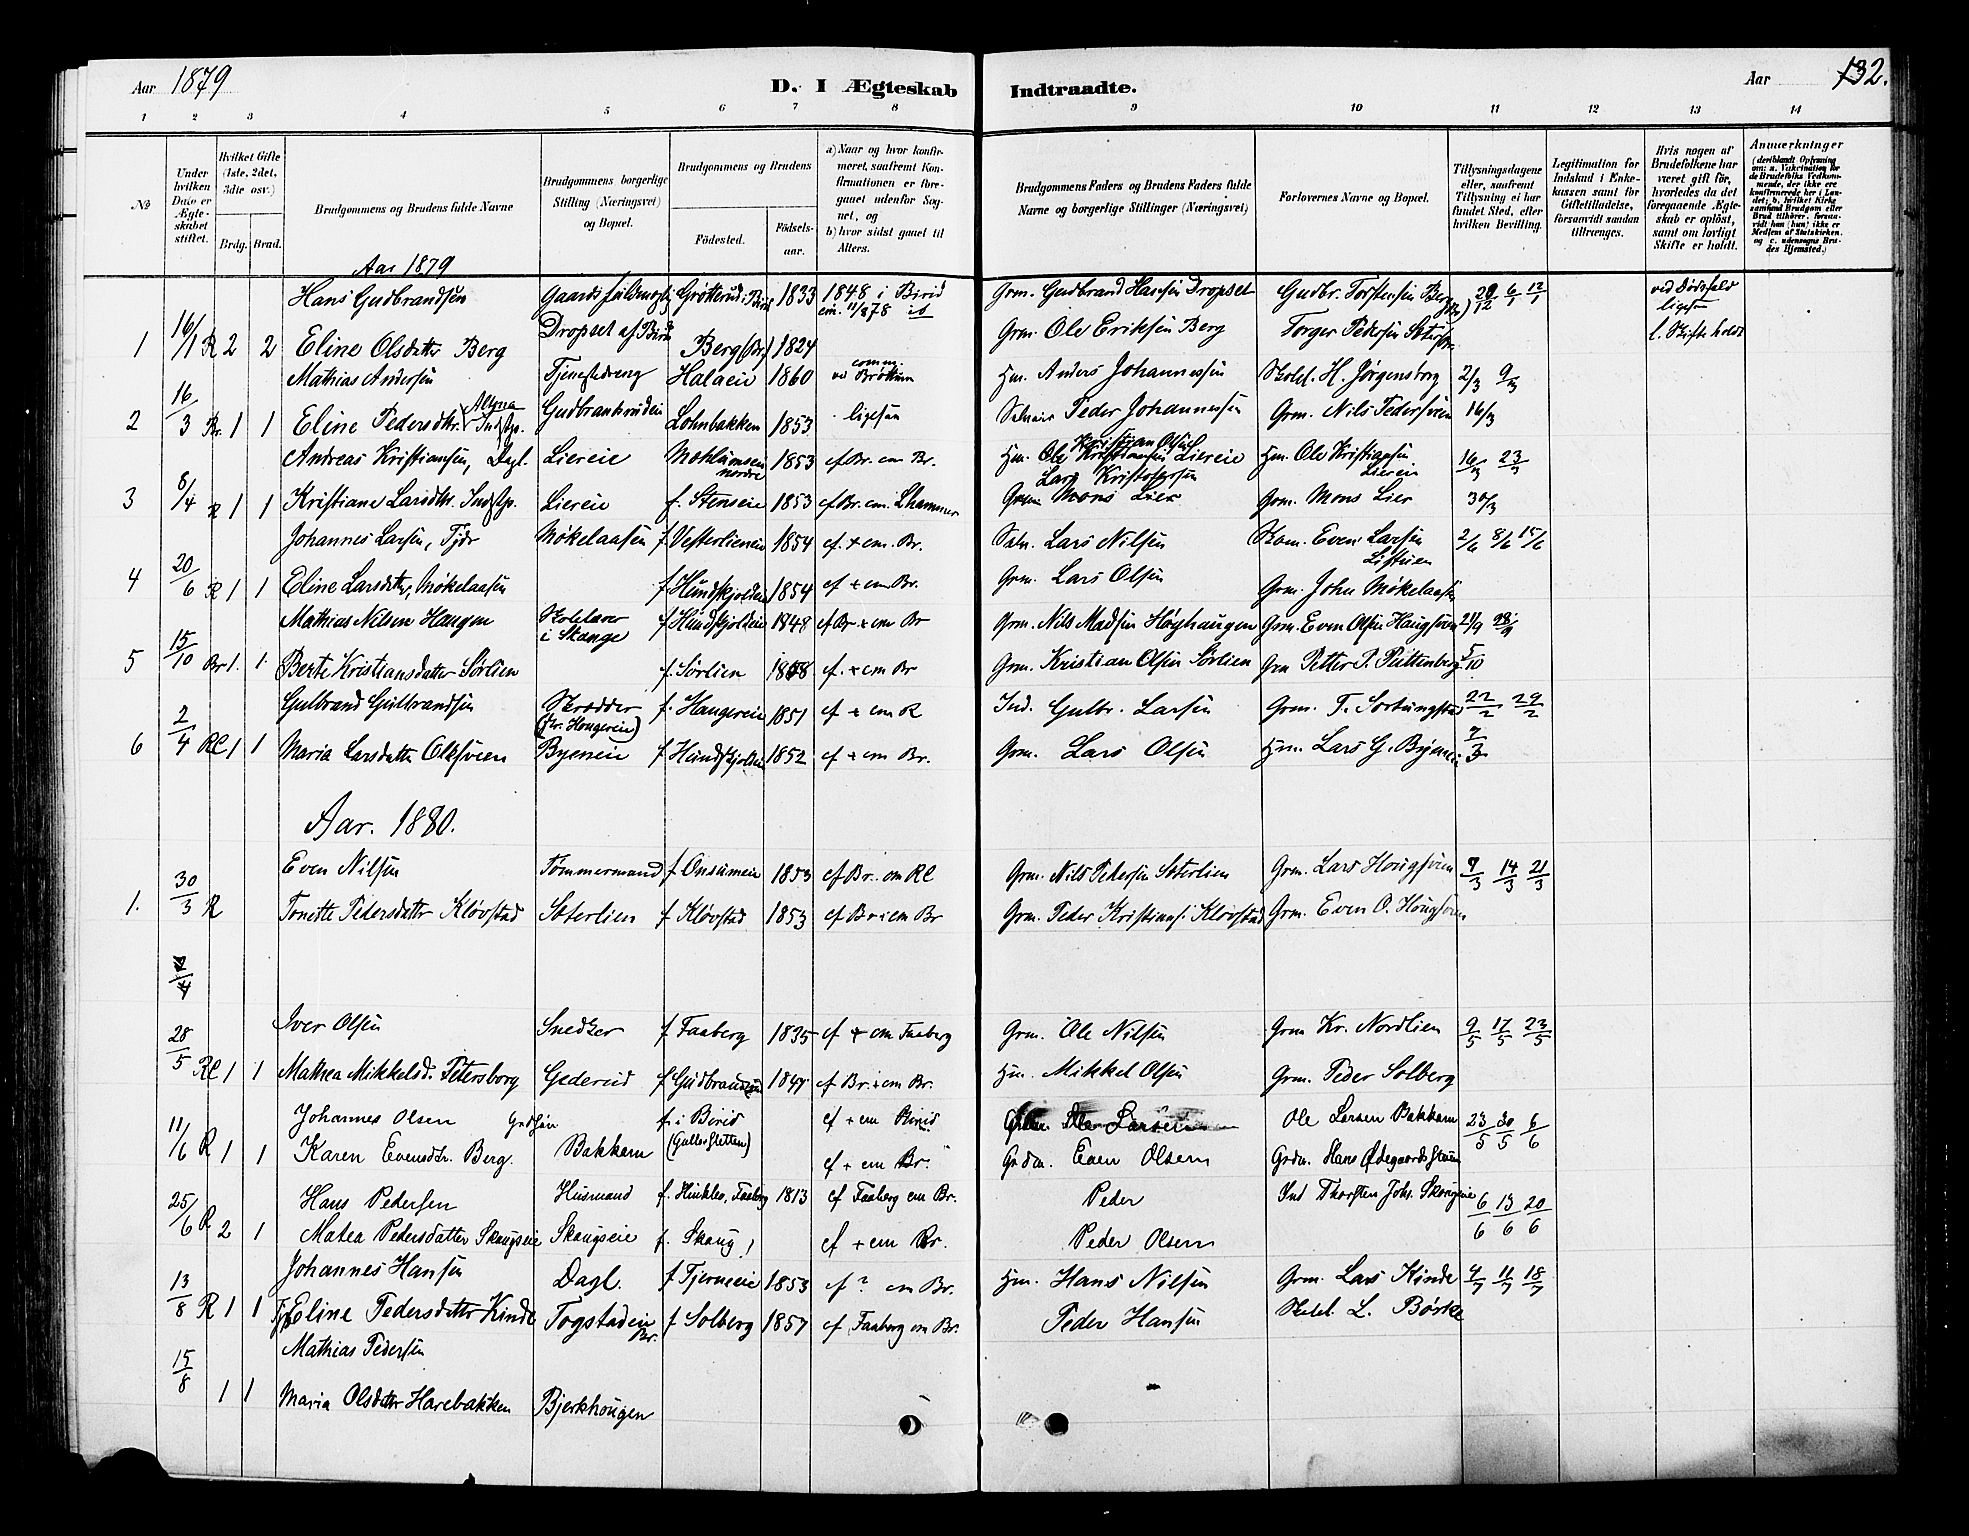 Aar 1879
D. I Ægteskab
Indtraadte.
Aar 132.
1 2 3 4 5 6 7 8 9 10 11 12 13 14
No
Under hvilken Dato er Ægteskabet stiftet.
Hvilket Gifte (1ste, 2det, 3die osv.)
Brdg. Brud.
Brudgommens og Brudens fulde Navne
Brudgommens borgerlige Stilling (Næringsvei) og Bopæl.
Brudgommens og Brudens
Fødested.
Fødselsaar.
a) Naar og hvor konfirmeret, saafremt Konfirmationen er foregaaet udenfor Sognet, og
b) hvor sidst gaaet til Alters.
Brudgommens Faders og Brudens Faders fulde Navne og borgerlige Stillinger (Næringsvei)
Forlovernes Navne og Bopæl.
Tillysningsdagene eller, saafremt Tillysning ei har fundet Sted, efter hvilken Bevilling.
Legitimation for Indskud i Enkekassen samt for Giftetilladelse, forsaavidt saadan tiltrænges.
Hvis nogen af Brudefolkene har været gift før, hvorledes da det foregaaende Ægteskab er opløst, samt om lovligt Skifte er holdt.
Anmærkninger
Aar 1879
Hans Gudbrandsen 1833 1848 i Birid Grm. Gudbrand Hansen Dropset Gudbr. Torstensen 6/1 12/1 ved Dødsfald
ligesaa
1 16/1 R 2 2 Eline Olsdatter Berg Dropset af Birid Berg (Br.) 1824 Grm. Ole Eriksen Berg Torger Pedersen l. Skifte holdt
Mathias Andersen Tjenestedreng Halaeie 1860 Hm. Anders Johannessen Skolel. H. Jørgensborg 2/3 9/3
2 16/3 Br. 1 1 Eline Pedersdtr. Lohnbakken 1853 ligesaa Peder Johannesen Grm. Nils Pedersveen 16/3
Andreas Kristiansen, Dagl. Liereie 1853 cf Br. em Br. Hm. Ole Kristiansen Liereie Kristian Olsen Hm. Ole Kristiansen Liereie 16/3 23/3
3 8/4 R 1 1 Kristiane Larsdtr. Liereie f. Stenseie 1853 cf Br. em. Lhammer Lars Kristofersen Grm. Mons Lier Grm. Mons Lier 30/3
Johannes Larsen, Tjdr Møkelaasen f. Vesterlieneie 1854 cf. + em. Br. Lars Nilsen Even Larsen 2/6 8/6 15/6
4 20/6 R 1 1 Eline Larsdatter, Møkelaasen f. Hundskjoldeie 1854 cf + em Br. Grm. Lars Olsen Grm. John Møkelaasen
Mathias Nilsen Haugen Skolelærer i Stange f Hundskjoldeie 1848 cf Br. + em Br Grm. Nils Madsen Høghaugen Grm. Even Olsen Haugsveen 21/9 28/9
5 15/10 Br 1. 1. Berte Kristiansdatter Sørlien f. Sørlien 1848 cf. + em Br Grm. Kristian Olsen Sørlien Grm Petter P. 5/10
Gulbrand Gulbrandsen Skrædder f. Haugereie 1851 cf + em R Ind. Gulbr. Larsen Grm. T. Sortungstad 22/2 29/2
6 2/4 Rl 1 1 Maria Larsdatter Olesveen Byeneie f Hundskjoldeie 1852 cf + em Br. Grm. Lars Olsen Hm. Lars G. Byeneie 7/3
Aar. 1880.
Even Nilsen Tømmermand f Onsumeie 1853 cf Br. em Rl Grm. Nils Pedersen Sæterlien Grm. Lars Hougsveen 7/3 14/3 21/3
1. 30/3 R Tonette Petersdattr Kløvstad Sæterlien f Kløvstad 1853 cf Br + em Br Grm. Peder Kristians. Kløvstad Grm. Even O. Hougsveen
2/4
Iver Olsen Snedker f Faaberg 1835 cf + em Faaberg Grm. Ole Nilsen Grm Kr. Nordlien 9/5 17/5 23/5
28/5 Rl 1 1 Mathea Mikkelsd. Petersborg Gederud cf Br. + em Br. Hm. Mikkel Olsen Grm. Peder Solberg
Johannes Olsen f. i Birid cf + em Birid Ole Larsen Ole Larsen Bakkem 23/5 30/5 6/6
11/6 R 1 1 Karen Evensdtr. Berg. Bakkem cf + em Br. Grdm. Even Olsen Grdm. Hans Ødegaardsstuen
Hans Pedersen Husmand f. Hinklev, Faaberg 1813 cf Faaberg em Br. Peder Ind Thorsten Johs. Skougeie 6/6 13/6 20/6
25/6 R 2 1 Matea Pedersdatter Skaugseie Skaugseie f. Skaug cf + em Br. Peder Olsen
Johannes Hansen Dagl. f Tjerneeie 1853 cf ? em Br. Hm. Hans Nilsen Grm. Lars Kinde 4/7 11/7 18/7
13/8 R 1 1 Eline Pedersdatter Kinde Togstadeie Br. f Solberg 1857 cf Faaberg em Br. Peder Hansen Skolel. L. Børke
Mathias Pedersen
15/8 1 1 Maria Olsdatter Harebakken Bjerkhougen